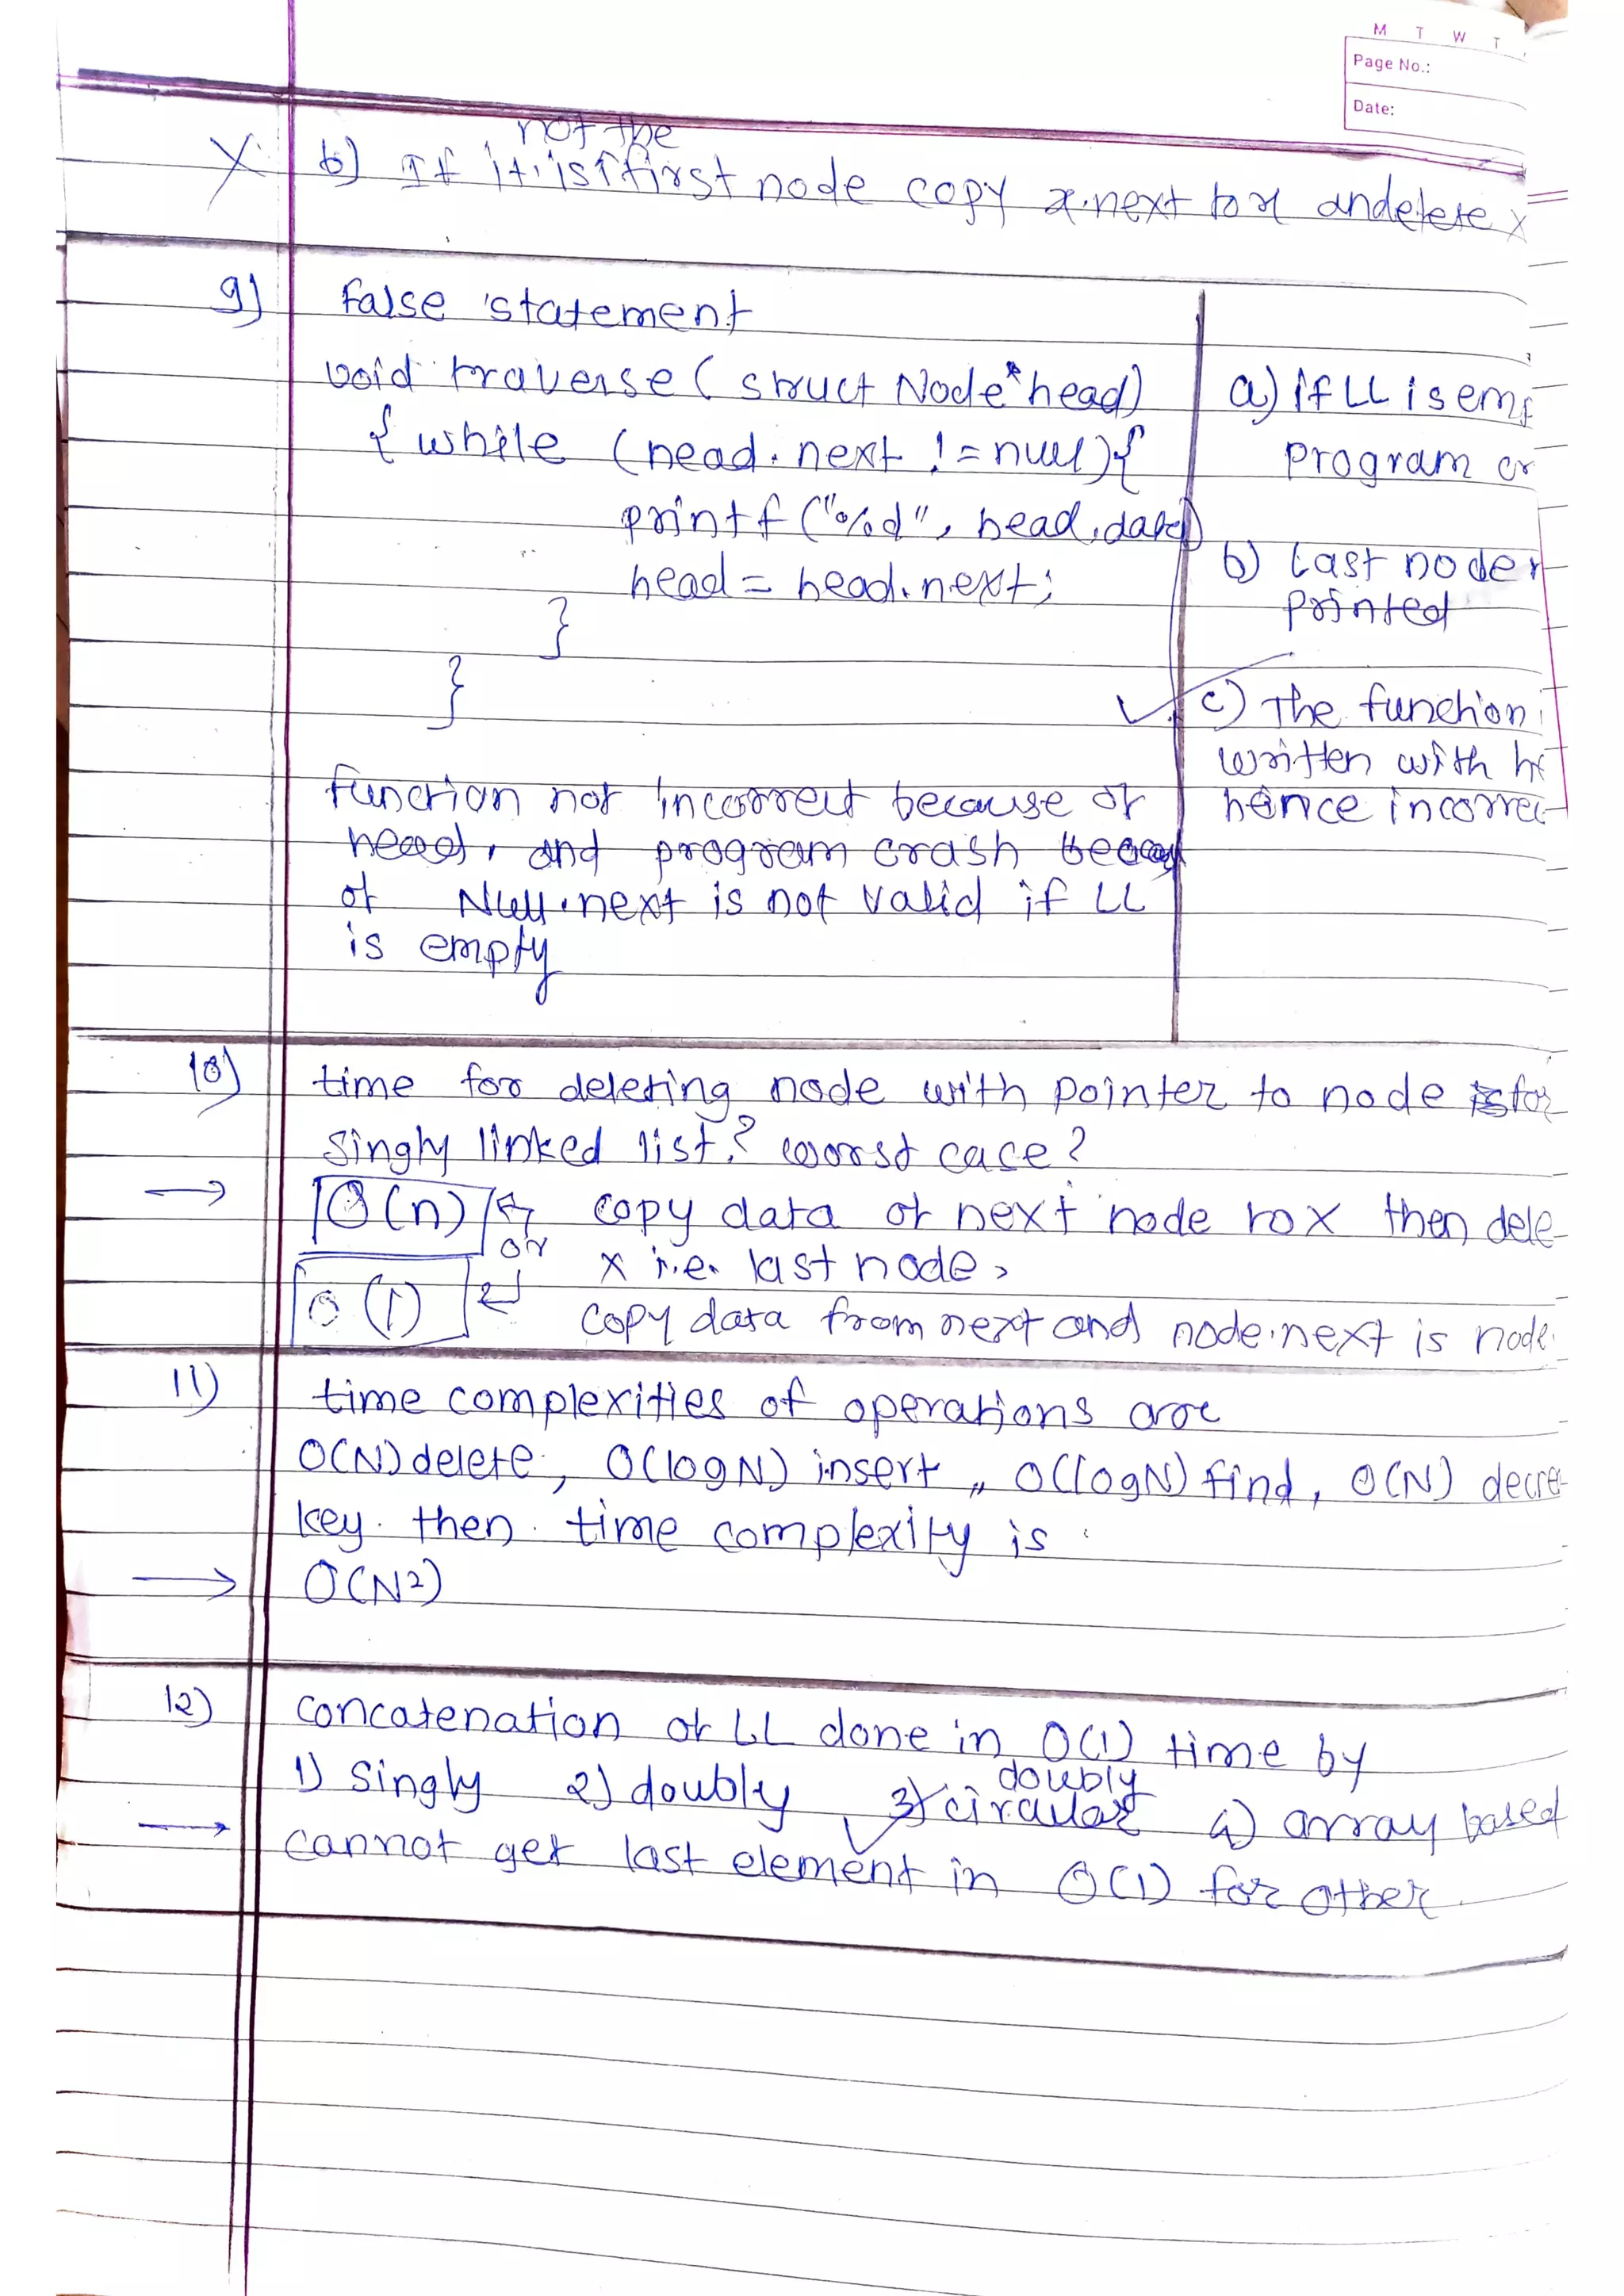 M T W T
Page No.:
Date:
not the
X b) If it is first node copy x.next to x and delete x
9) false statement
void traverse ( struct Node* head)
{ while (head. next != null){
printf ("%d", head.data)
head = head.next;
}
}
function not incorrect because of
head, and program crash
of Null.next is not valid if LL
is empty
a) if LL is emp
program cr
b) Last node n
printed
c) The function i
written with he
hence incorrec
10) time for deleting node with pointer to node for
singly linked list? worst case?
→ O(n) copy data of next node to x then dele
or x i.e. last node,
O(1) copy data from next and node.next is node.
11) time complexities of operations are
O(N) delete, O(logN) insert, O(logN) find, O(N) decre
key. then time complexity is
→ O(N2)
12) concatenation of LL done in O(1) time by
1) singly 2) doubly 3) doubly circular 4) array based
→ cannot get last element in O(1) for other.